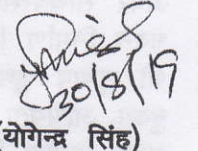 30/8/19
(योगेन्द्र सिंह)